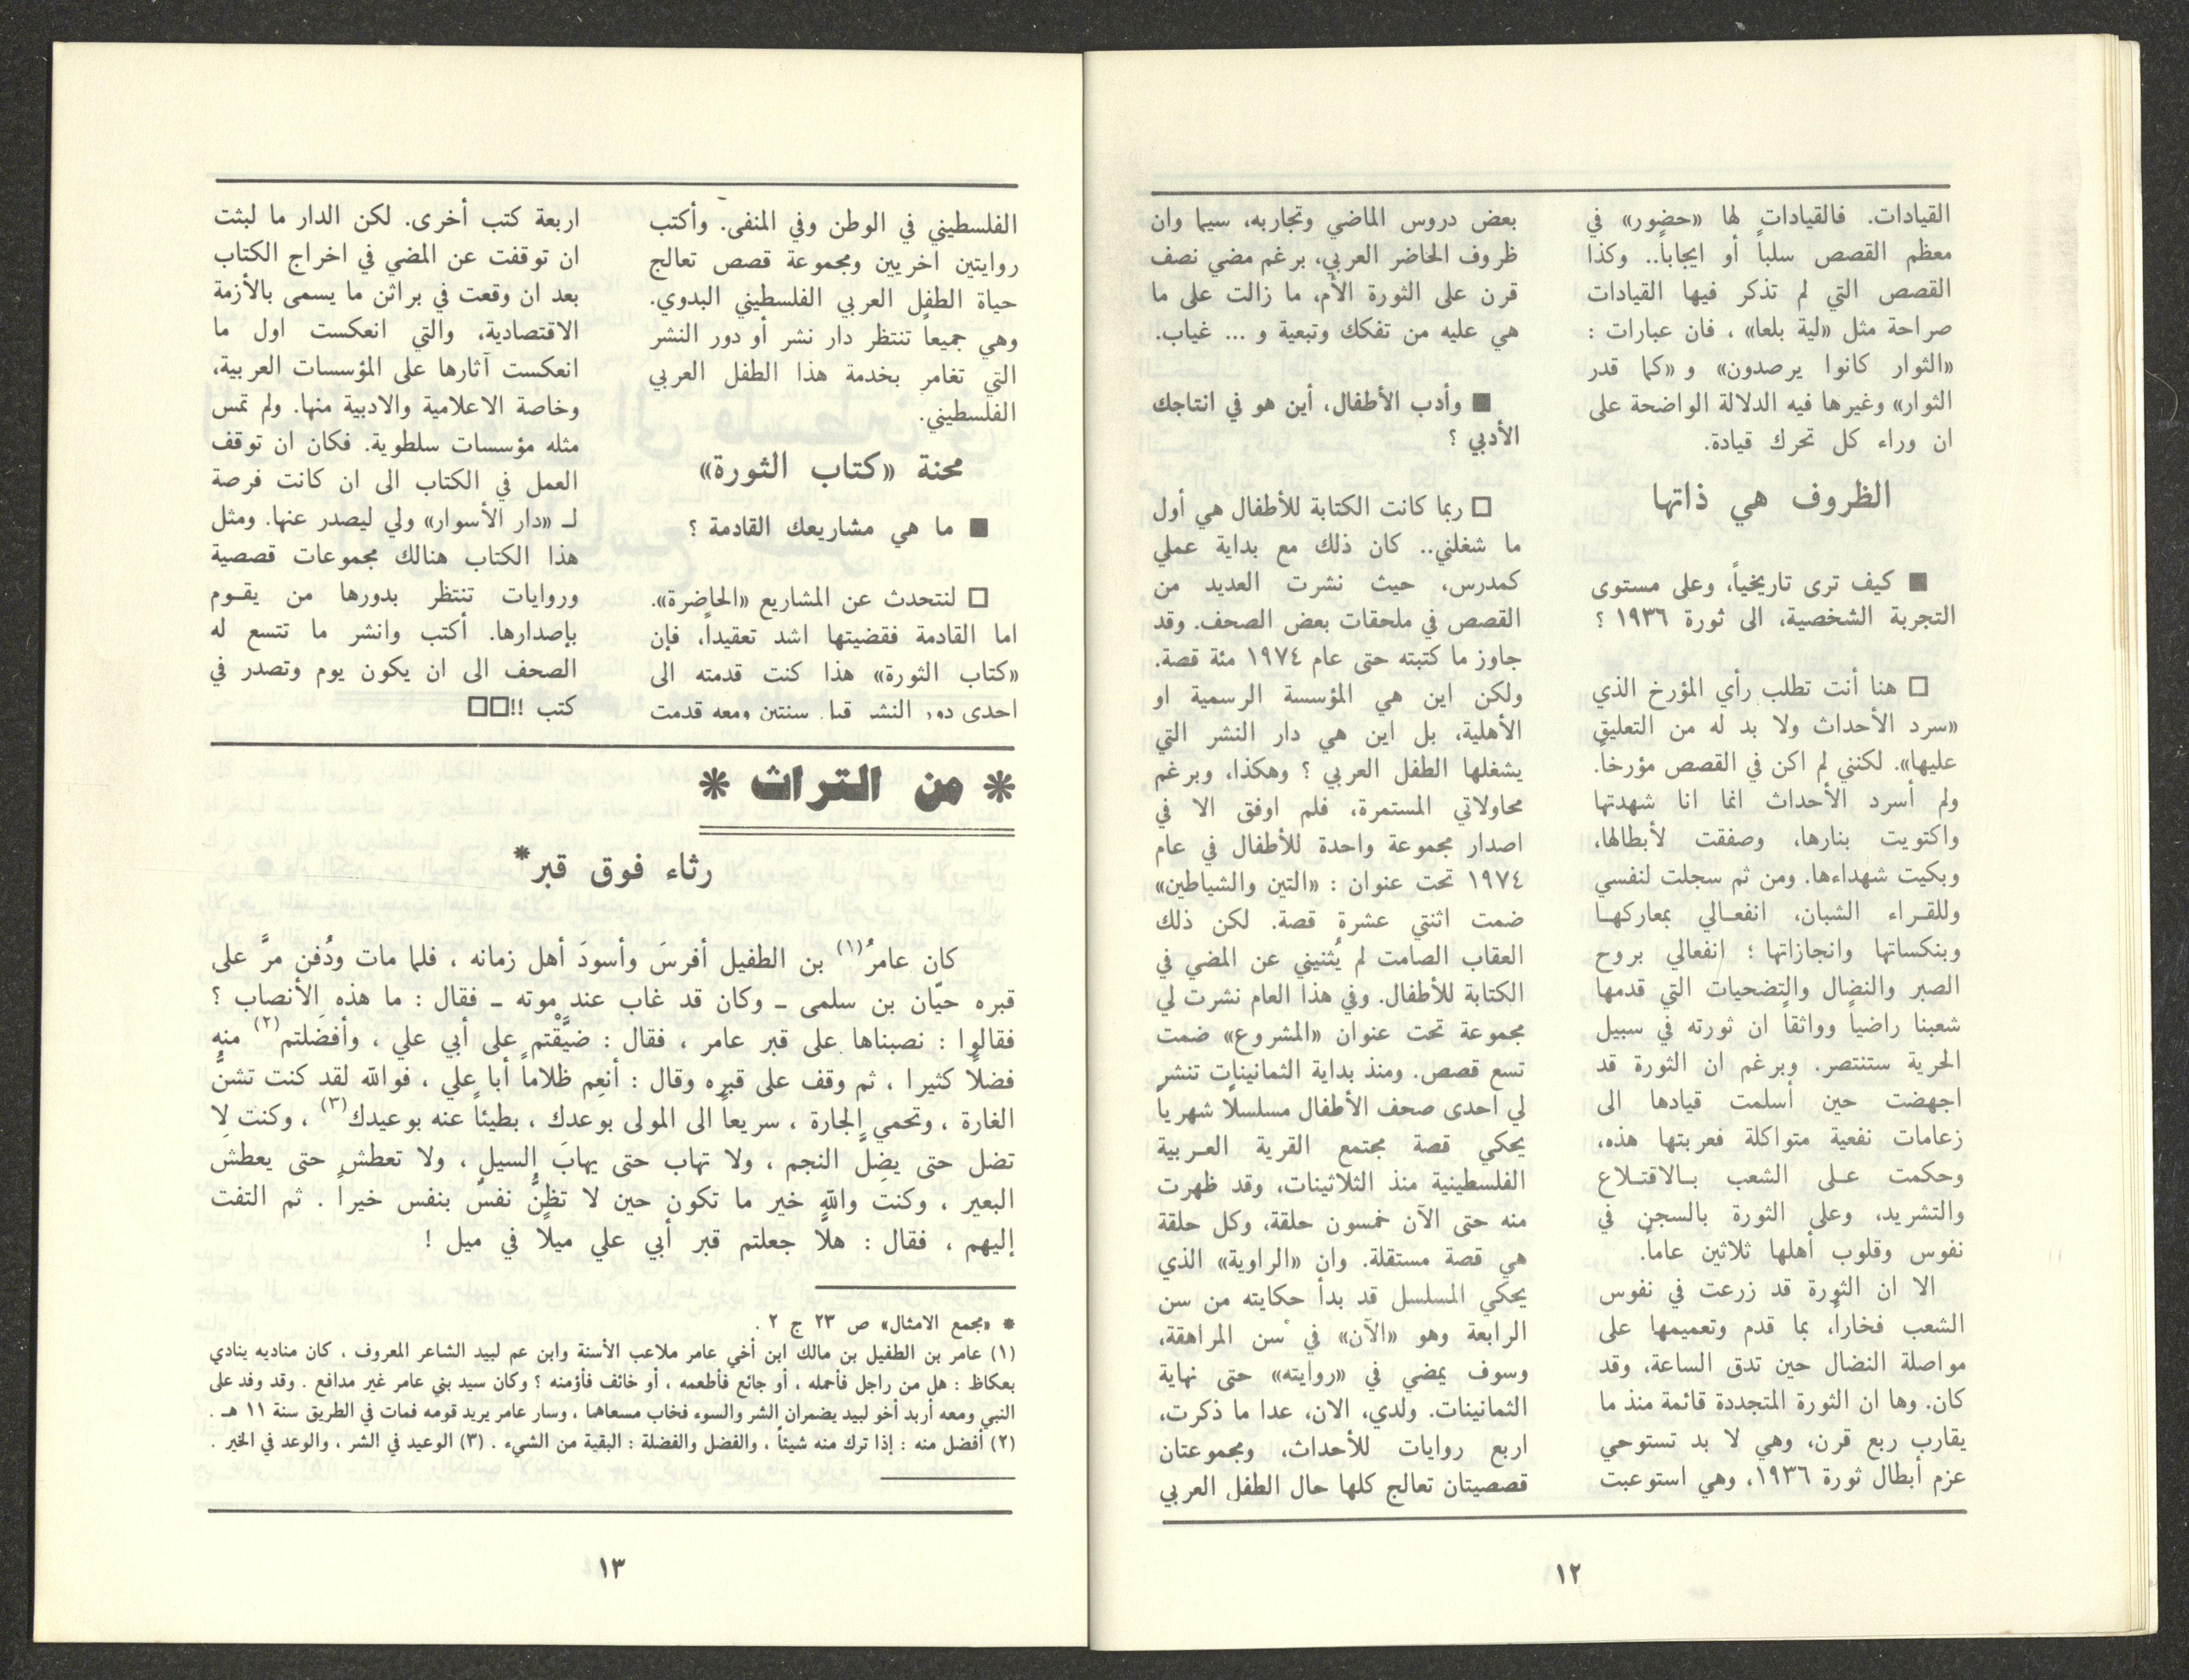 القيادات. فالقيادات لها «حضور» في
معظم القصص سلباً أو ايجاباً.. وكذا
القصص التي لم تذكر فيها القيادات
صراحة مثل «لية بلعا» ، فان عبارات :
«الثوار كانوا يرصدون» و «كما قدر
الثوار» وغيرها فيه الدلالة الواضحة على
ان وراء كل تحرك قيادة.
الظروف هي ذاتها
■ كيف ترى تاريخياً، وعلى مستوى
التجربة الشخصية، الى ثورة ١٩٣٦ ؟
□ هنا أنت تطلب رأي المؤرخ الذي
«سرد الأحداث ولا بد له من التعليق
عليها». لكنني لم اكن في القصص مؤرخاً.
ولم أسرد الأحداث انما انا شهدتها
واكتويت بنارها، وصفقت لأبطالها،
وبكيت شهداءها. ومن ثم سجلت لنفسي
وللقـراء الشبان، انفعـالي بمعاركهـا
وبنكساتها وانجازاتها ؛ انفعالي بروح
الصبر والنضال والتضحيات التي قدمها
شعبنا راضياً وواثقاً ان ثورته في سبيل
الحرية ستنتصر. وبرغم ان الثورة قد
اجهضت حين أسلمت قيادها الى
زعامات نفعية متواكلة فعربتها هذه،
وحكمت عـلى الشعب بـالاقتـلاع
والتشريد، وعلى الثورة بالسجن في
نفوس وقلوب أهلها ثلاثين عاماً.
الا ان الثورة قد زرعت في نفوس
الشعب فخاراً، بما قدم وتعميمها على
مواصلة النضال حين تدق الساعة، وقد
كان. وها ان الثورة المتجددة قائمة منذ ما
يقارب ربع قرن، وهي لا بد تستوحي
عزم أبطال ثورة ١٩٣٦، وهي استوعبت
بعض دروس الماضي وتجاربه، سيما وان
ظروف الحاضر العربي، برغم مضي نصف
قرن على الثورة الأم، ما زالت على ما
هي عليه من تفكك وتبعية و ... غياب.
■ وأدب الأطفال، أين هو في انتاجك
الأدبي ؟
□ ربما كانت الكتابة للأطفال هي أول
ما شغلني.. كان ذلك مع بداية عملي
كمدرس، حيث نشرت العديد من
القصص في ملحقات بعض الصحف. وقد
جاوز ما كتبته حتى عام ١٩٧٤ مئة قصة.
ولكن اين هي المؤسسة الرسمية او
الأهلية، بل اين هي دار النشر التي
يشغلها الطفل العربي ؟ وهكذا، وبرغم
محاولاتي المستمرة، فلم اوفق الا في
اصدار مجموعة واحدة للأطفال في عام
١٩٧٤ تحت عنوان : «التين والشياطين»
ضمت اثنتي عشرة قصة. لكن ذلك
العقاب الصامت لم يُثنيني عن المضي في
الكتابة للأطفال. وفي هذا العام نشرت لي
مجموعة تحت عنوان «المشروع» ضمت
تسع قصص. ومنذ بداية الثمانينات تنشر
لي احدى صحف الأطفال مسلسلاً شهرياً
يحكي قصة مجتمع القرية العـربية
الفلسطينية منذ الثلاثينات، وقد ظهرت
منه حتى الآن خمسون حلقة، وكل حلقة
هي قصة مستقلة. وان «الراوية» الذي
يحكي المسلسل قد بدأ حكايته من سن
الرابعة وهو «الآن» في سن المراهقة،
وسوف يمضي في «روايته» حتى نهاية
الثمانينات. ولدي، الان، عدا ما ذكرت،
اربع روايات للأحداث، ومجموعتان
قصصيتان تعالج كلها حال الطفل العربي
١٢
الفلسطيني في الوطن وفي المنفى. وأكتب
روايتين اخريين ومجموعة قصص تعالج
حياة الطفل العربي الفلسطيني البدوي.
وهي جميعاً تنتظر دار نشر أو دور النشر
التي تغامر بخدمة هذا الطفل العربي
الفلسطيني.
محنة «كتاب الثورة»
■ ما هي مشاريعك القادمة ؟
□ لنتحدث عن المشاريع «الحاضرة».
اما القادمة فقضيتها اشد تعقيداً، فإن
«كتاب الثورة» هذا كنت قدمته الى
احدى دور النشر قبل سنتين ومعه قدمت
اربعة كتب أخرى. لكن الدار ما لبثت
ان توقفت عن المضي في اخراج الكتاب
بعد ان وقعت في براثن ما يسمى بالأزمة
الاقتصادية، والتي انعكست اول ما
انعكست آثارها على المؤسسات العربية،
وخاصة الاعلامية والادبية منها. ولم تمس
مثله مؤسسات سلطوية. فكان ان توقف
العمل في الكتاب الى ان كانت فرصة
لـ «دار الأسوار» ولي ليصدر عنها. ومثل
هذا الكتاب هنالك مجموعات قصصية
وروايات تنتظر بدورها من يقـوم
بإصدارها. أكتب وانشر ما تتسع له
الصحف الى ان يكون يوم وتصدر في
كتب !!□□
* من التراث *
رثاء فوق قبر*
كان عامرُ(١) بن الطفيل أفرسَ وأسودَ أهل زمانه ، فلما مات ودُفن مرَّ على
قبره حيّان بن سلمى ـ وكان قد غاب عند موته ـ فقال : ما هذه الأنصاب ؟
فقالوا : نصبناها على قبر عامر ، فقال : ضيَّقْتم على أبي علي ، وأفضَلتم(٢) منه
فضلاً كثيرا ، ثم وقف على قبره وقال : أنعِم ظلاماً أبا علي ، فوالله لقد كنت تشنُّ
الغارة ، وتحمي الجارة ، سريعاً الى المولى بوعدك ، بطيئاً عنه بوعيدك(٣) ، وكنت لا
تضل حتى يضِلَّ النجم ، ولا تهاب حتى يهابَ السيل ، ولا تعطش حتى يعطشَ
البعير ، وكنت والله خير ما تكون حين لا تظنُّ نفسٌ بنفس خيراً . ثم التفت
إليهم ، فقال : هلاَّ جعلتم قبر أبي علي ميلاً في ميل !
* «مجمع الامثال» ص ٢٣ ج ٢ .
(١) عامر بن الطفيل بن مالك ابن أخي عامر ملاعب الأسنة وابن عم لبيد الشاعر المعروف ، كان مناديه ينادي
بعكاظ : هل من راجل فأحمله ، أو جائع فأطعمه ، أو خائف فأؤمنه ؟ وكان سيد بني عامر غير مدافع . وقد وفد على
النبي ومعه أربد أخو لبيد يضمران الشر والسوء فخاب مسعاهما ، وسار عامر يريد قومه فمات في الطريق سنة ١١ هـ .
(٢) أفضل منه : إذا ترك منه شيئاً ، والفضل والفضلة : البقية من الشيء . (٣) الوعيد في الشر ، والوعد في الخير .
١٣